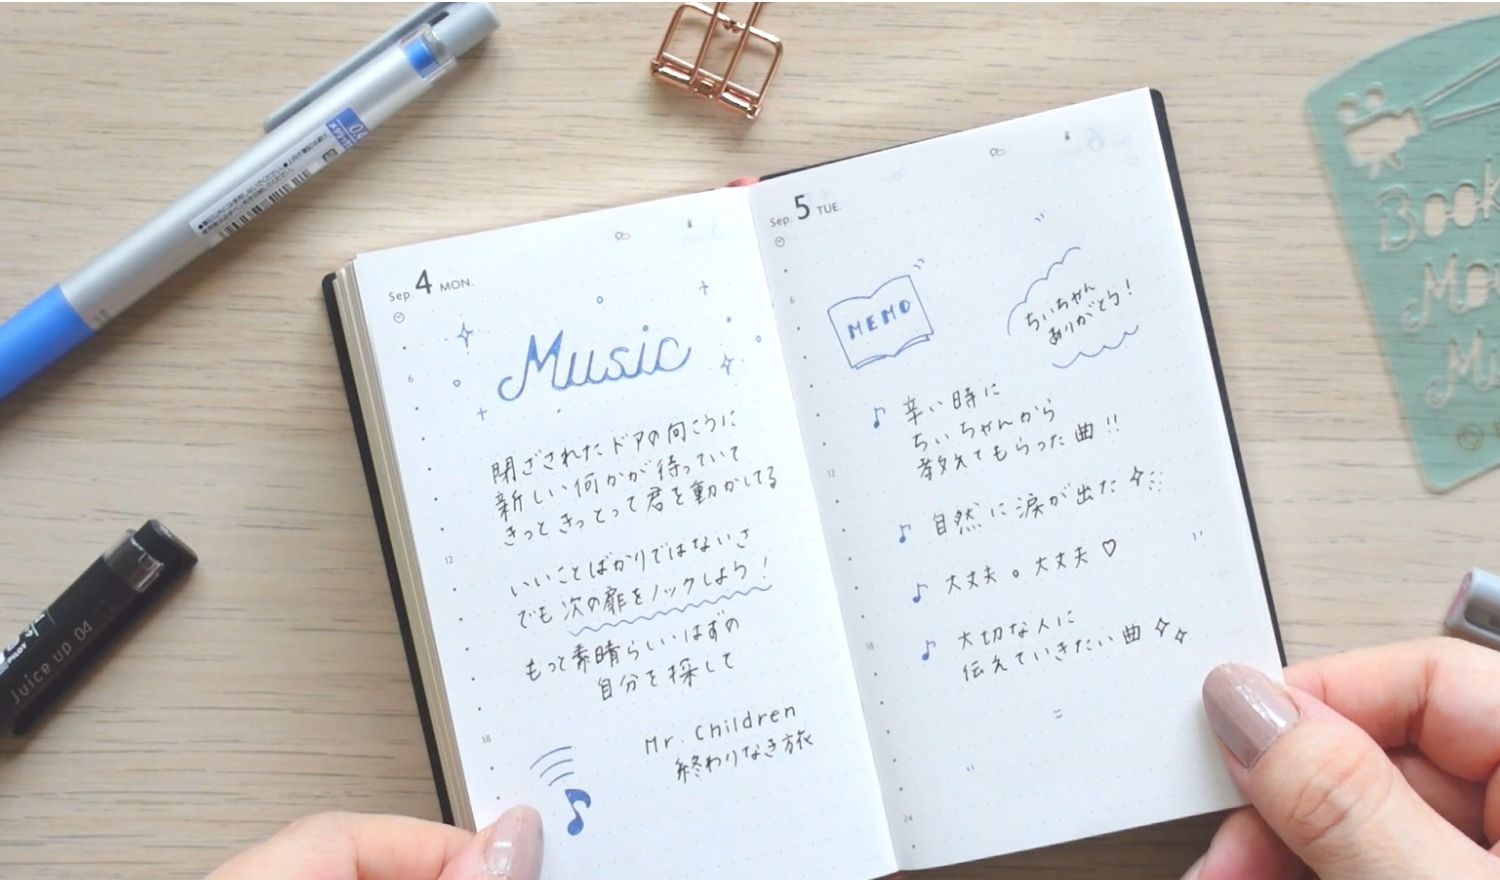 Sep. 4 MON.
6
12
18
Music
閉ざされたドアの向こうに
新しい何かが待っていて
きっときっとって君を動かしてる
いいことばかりではないさ
でも次の扉をノックしよう!
もっと素晴らしいはずの
自分を探して
Mr. Children
終わりなき旅
Sep. 5 TUE.
6
12
18
24
MEMO
ちぃちゃん
ありがとう!
辛い時に
ちぃちゃんから
教えてもらった曲!!
自然に涙が出た
大丈夫。大丈夫♡
大切な人に
伝えていきたい曲
0.4
Juice up 04
PILOT
Book
Mov
Mu